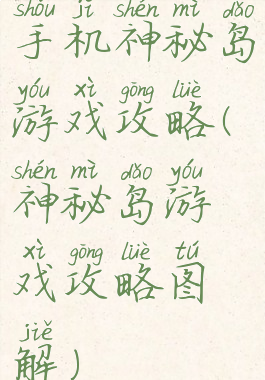 shǒu jī shén mì dǎo
手机神秘岛
yóu xì gōng lüè
游戏攻略(
shén mì dǎo yóu
神秘岛游
xì gōng lüè tú
戏攻略图
jiě
解)